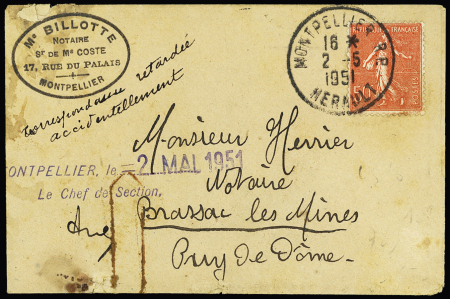 Me BILLOTTE
NOTAIRE
Sr DE Me COSTE
17, RUE DU PALAIS
MONTPELLIER
correspondance retardée
accidentellement
MONTPELLIER R.P.
16 *
2 - 5
1951
HERAULT
REPUBLIQUE FRANCAISE
50
Monsieur Herrier
ONTPELLIER, le -2 MAI 1951
Notaire
Le Chef de Section,
Brassac les Mines
Puy de Dôme.